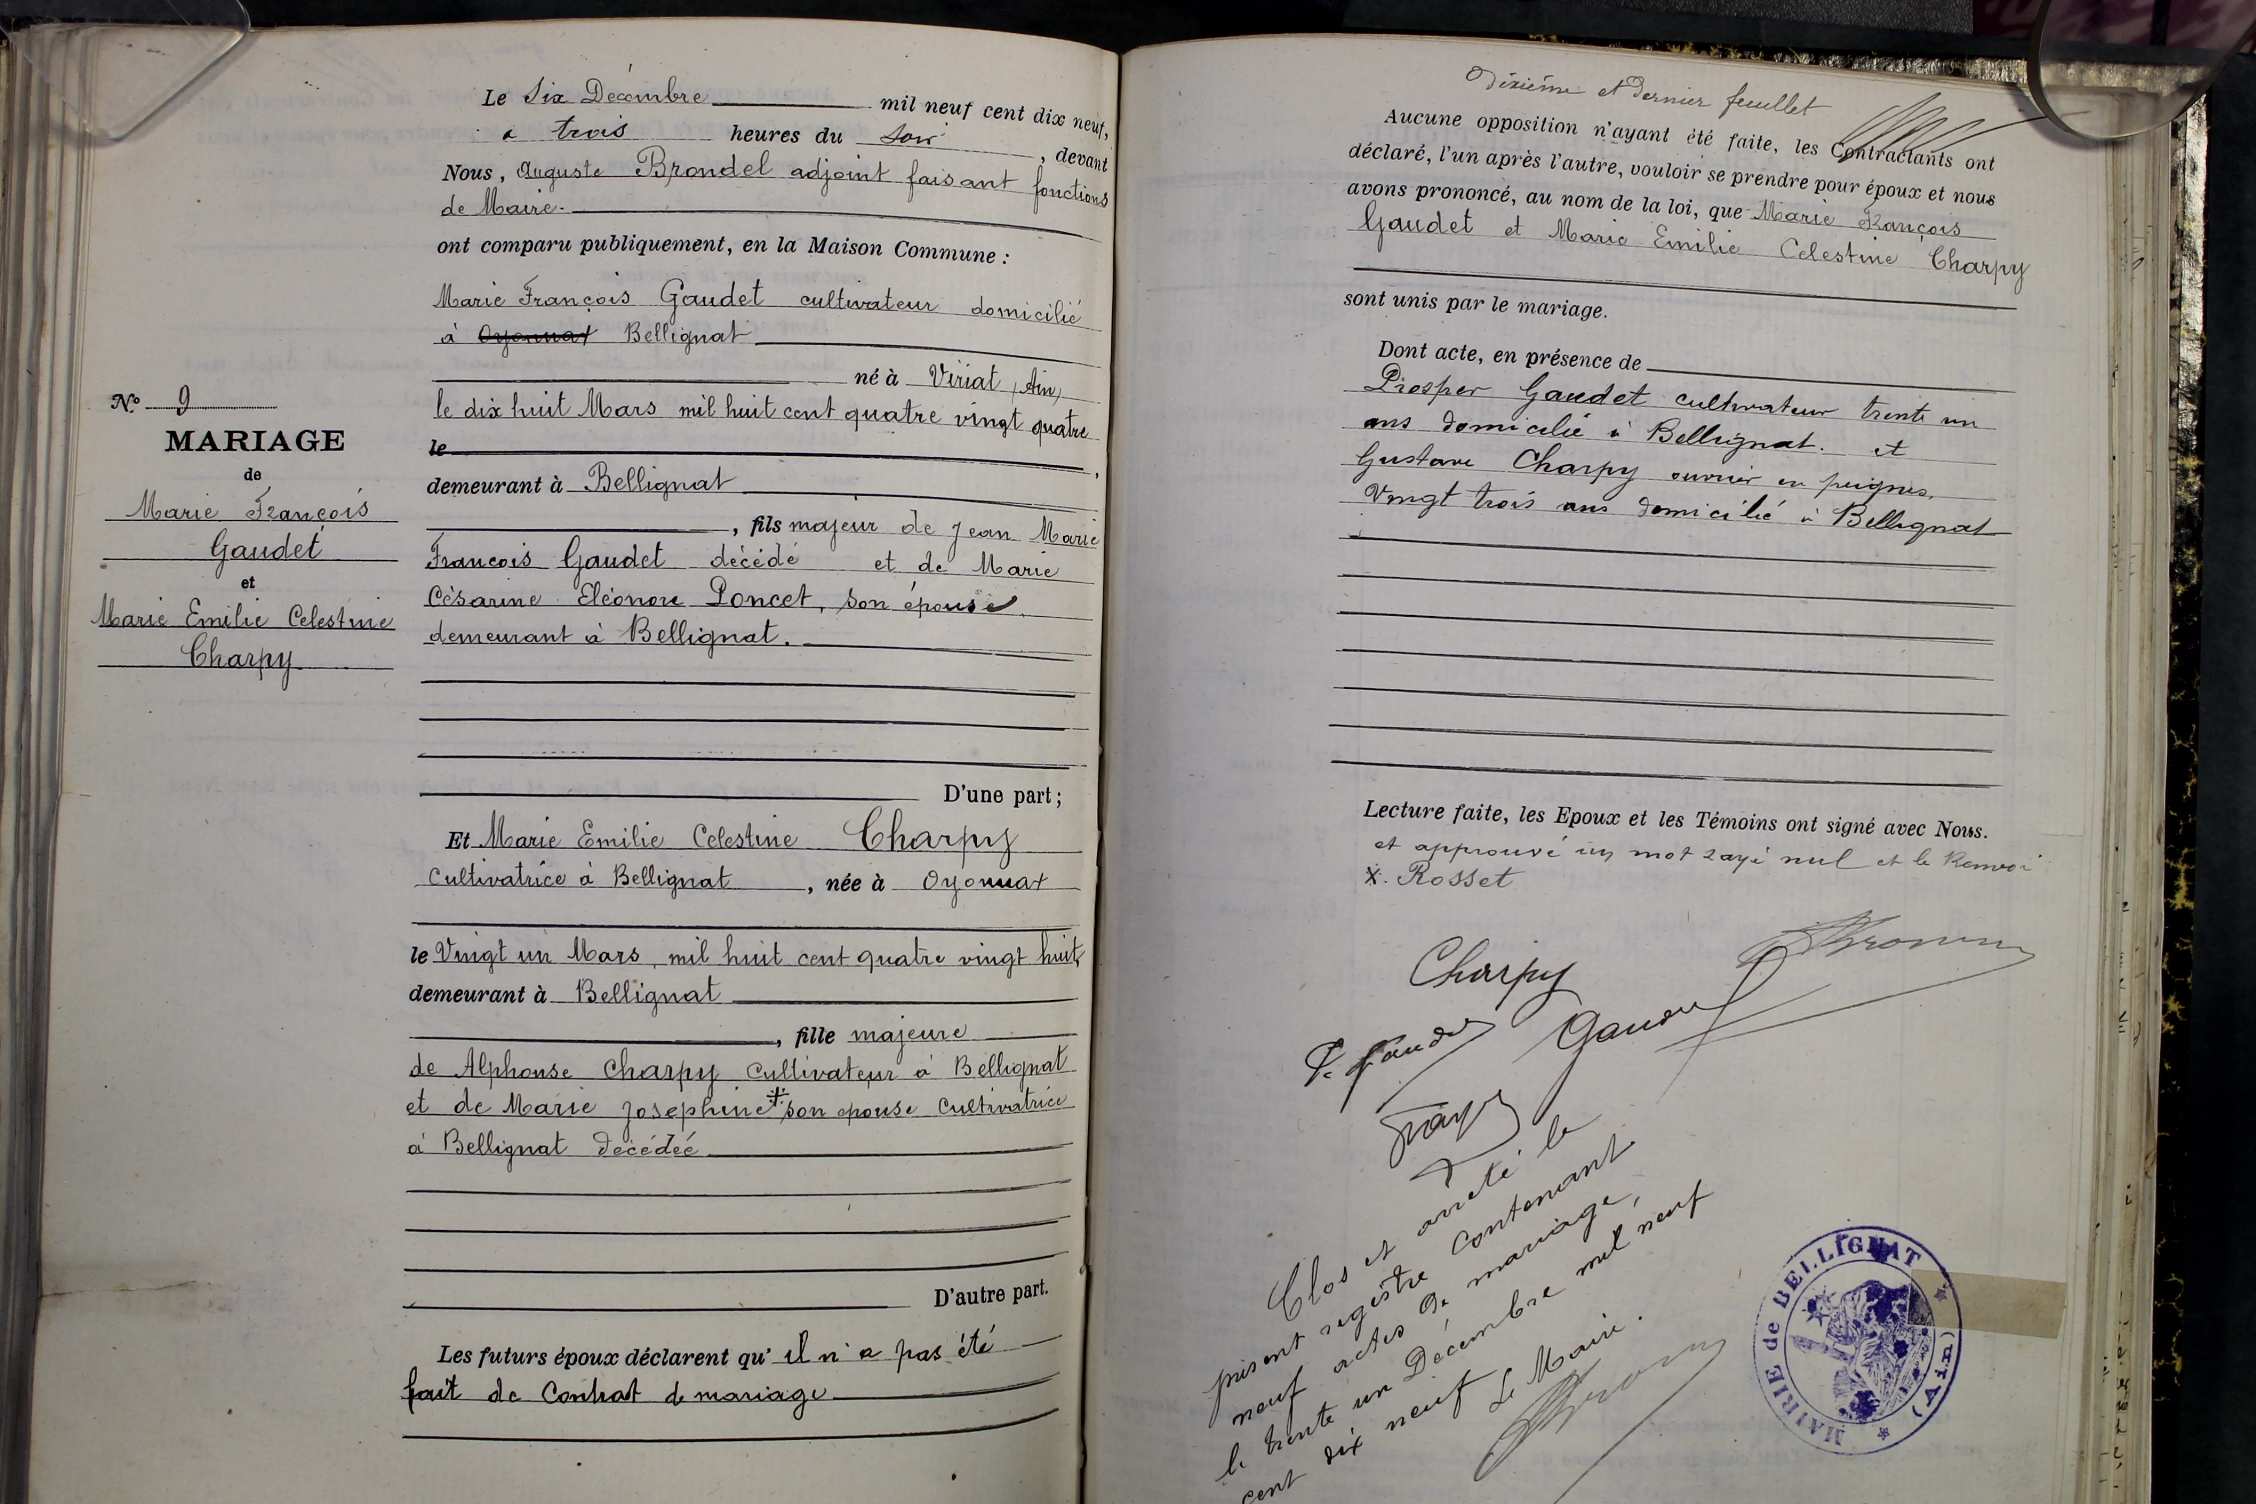 Le Six Décembre mil neuf cent dix neuf,
a trois heures du soir, devant
Nous, Auguste Brondel adjoint faisant fonctions
de Maire.
ont comparu publiquement, en la Maison Commune :
Marie François Gaudet cultivateur domicilié
à Oyonnax Bellignat
né à Viriat (Ain)
le dix huit Mars mil huit cent quatre vingt quatre
le
demeurant à Bellignat
, fils majeur de Jean Marie
François Gaudet décédé et de Marie
Césarine Eléonore Poncet, son épouse
demeurant à Bellignat.
D'une part;
Et Marie Emilie Celestine Charpy
Cultivatrice à Bellignat, née à Oyonnax
le Vingt un Mars, mil huit cent quatre vingt huit,
demeurant à Bellignat
, fille majeure
de Alphonse Charpy Cultivateur à Bellignat
et de Marie Josephine son epouse Cultivatrice
à Bellignat décédée
D'autre part.
Les futurs époux déclarent qu' il n'a pas été
fait de Contrat de mariage
No 9
MARIAGE
de
Marie François
Gaudet
et
Marie Emilie Celestine
Charpy
Dixième et Dernier feuillet
Aucune opposition n'ayant été faite, les Contractants ont
déclaré, l'un après l'autre, vouloir se prendre pour époux et nous
avons prononcé, au nom de la loi, que Marie François
Gaudet et Marie Emilie Celestine Charpy
sont unis par le mariage.
Dont acte, en présence de
Prosper Gaudet cultivateur trente un
ans domicilié à Bellignat. et
Gustave Charpy ouvrier en peignes,
Vingt trois ans domicilié à Bellignat
Lecture faite, les Epoux et les Témoins ont signé avec Nous.
et approuvé un mot rayé nul et le Renvoi
x. Rosset
Charpy
P. Gaudet
Gaudet
Clos et arreté le
présent registre Contenant
neuf actes de mariage,
le trente un Décembre mil neuf
cent dix neuf Le Maire.
MAIRIE de BELLIGNAT
(Ain)